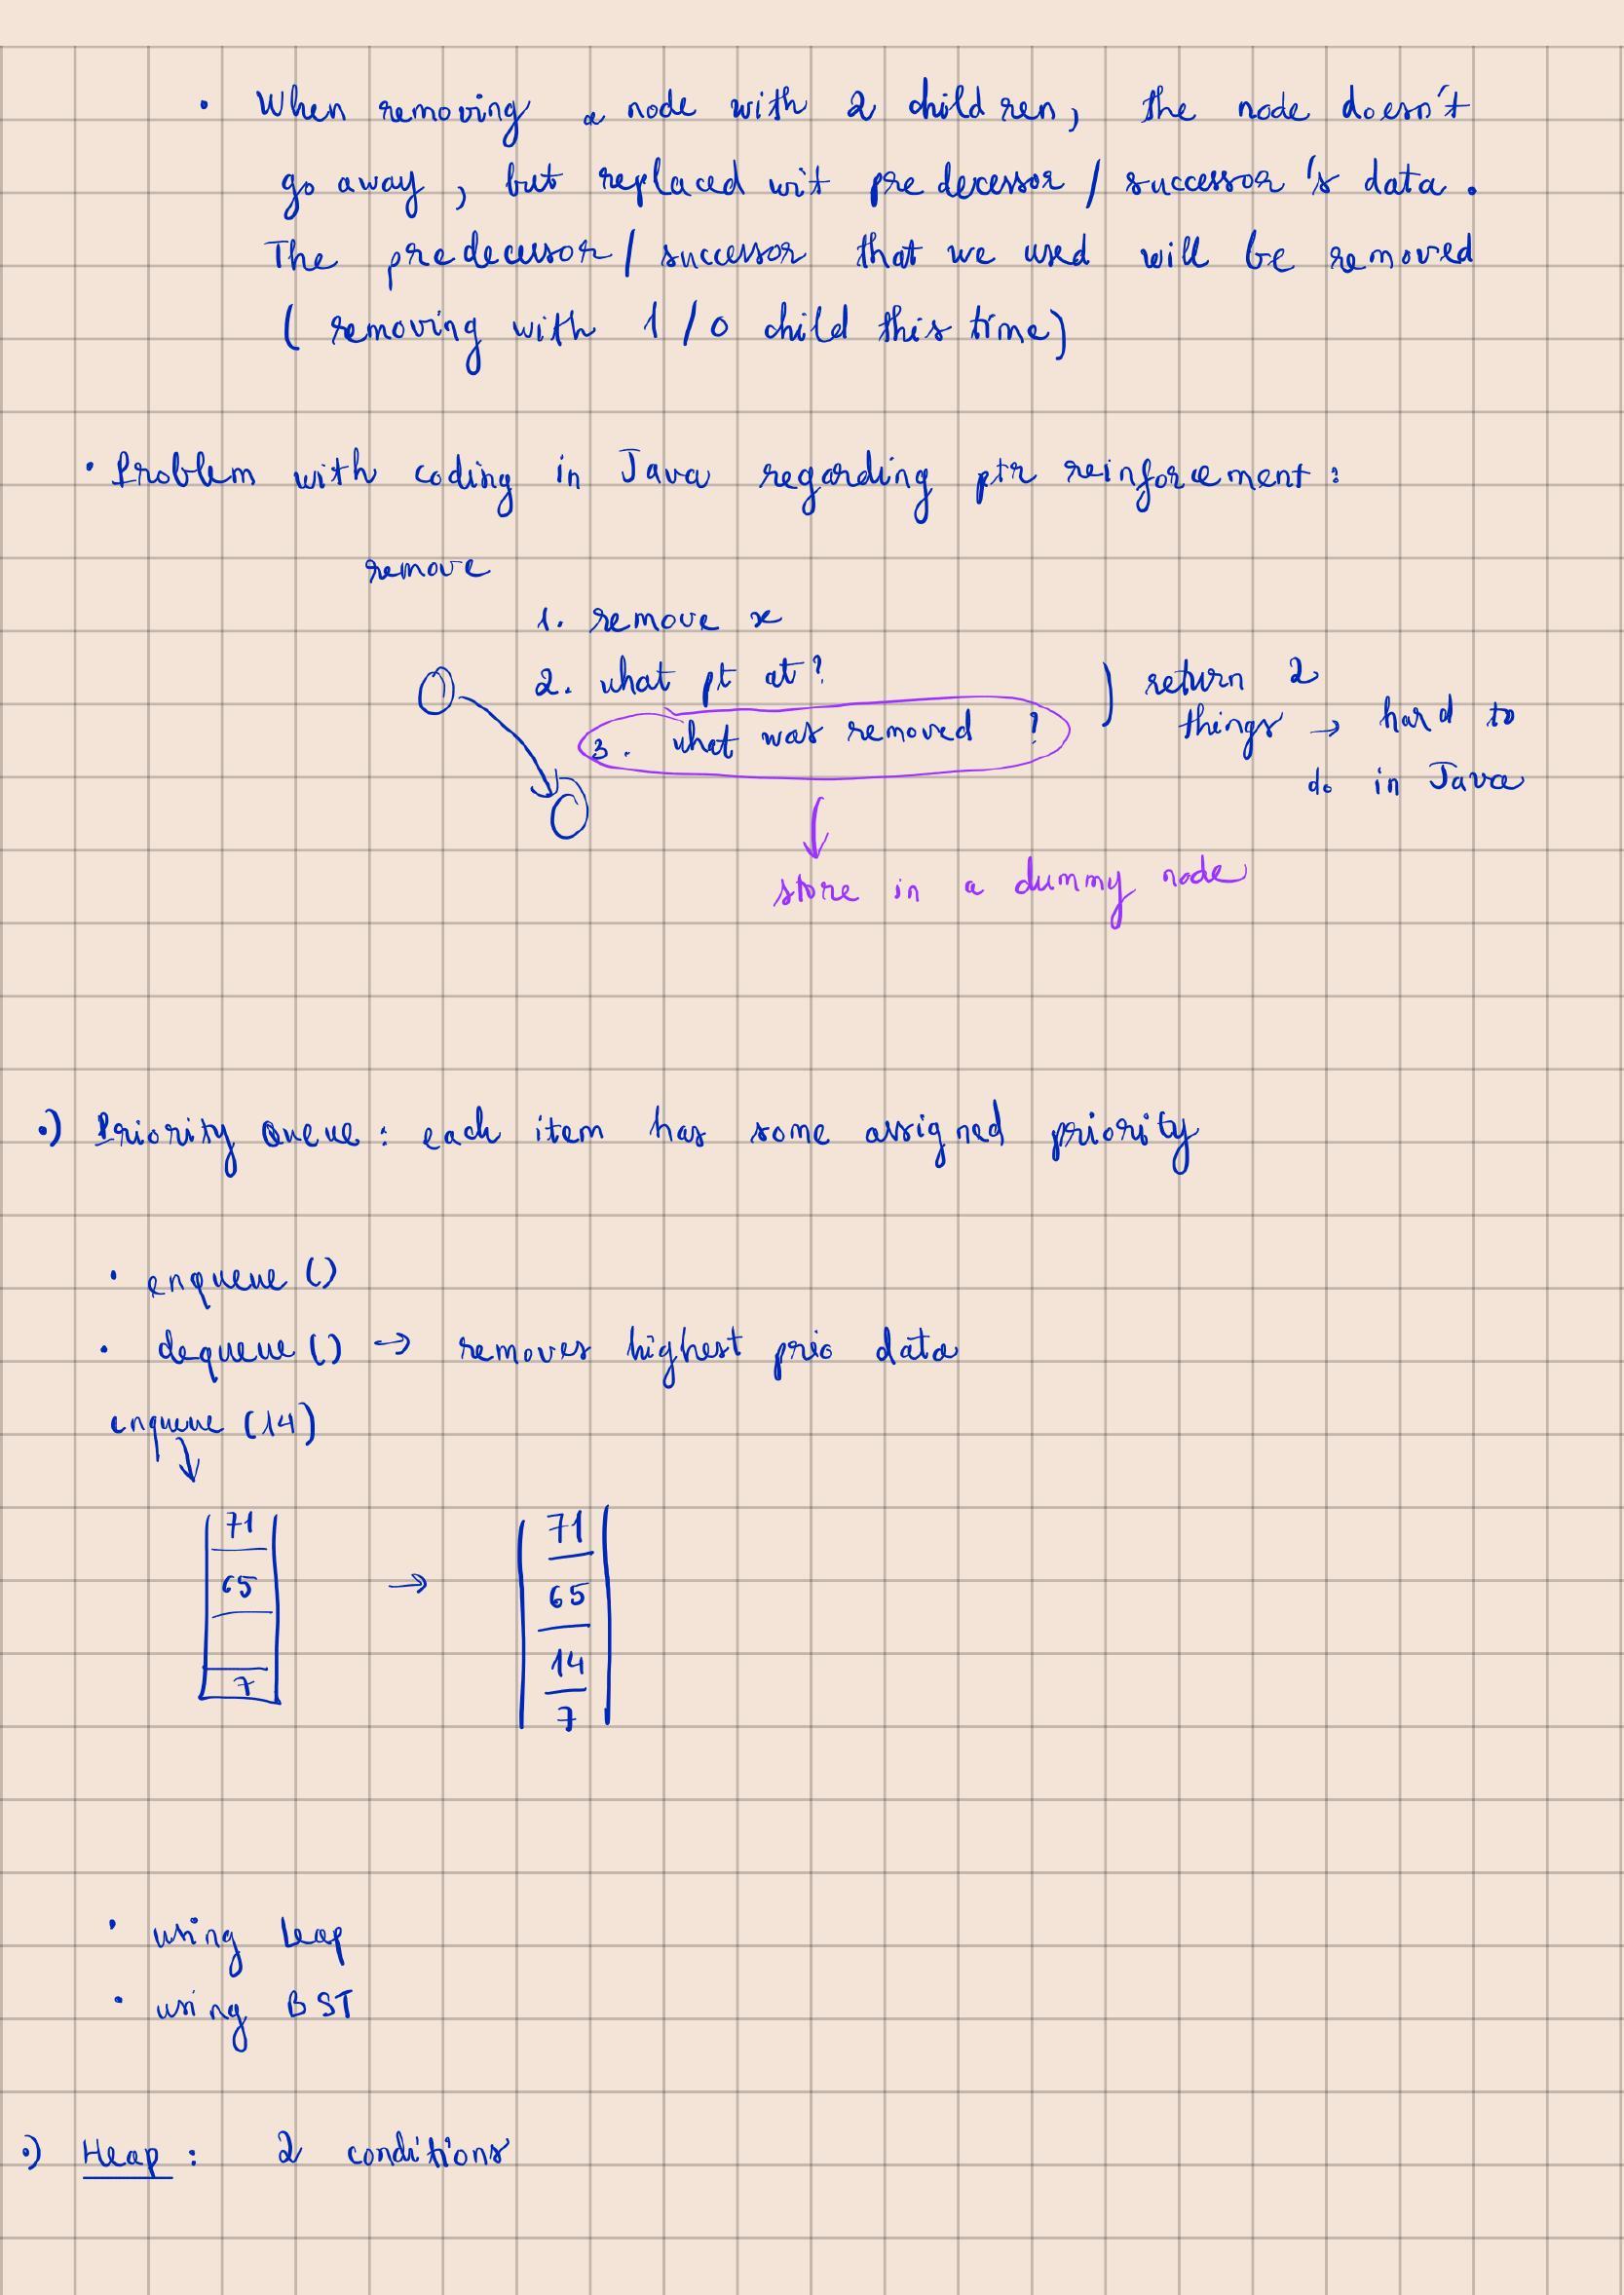 • When removing a node with 2 children, the node doesn't
go away, but replaced wit predecessor / successor's data.
The predecessor / successor that we used will be removed
( removing with 1 / 0 child this time)
• Problem with coding in Java regarding ptr reinforcement:
remove
1. remove x
2. what pt at?
3. what was removed ?
) return 2
things → hard to
do in Java
store in a dummy node
•) Priority Queue: each item has some assigned priority
• enqueue ()
• dequeue () → removes highest prio data
enqueue (14)
71
65
7
→
71
65
14
7
• using heap
• using BST
•) Heap : 2 conditions